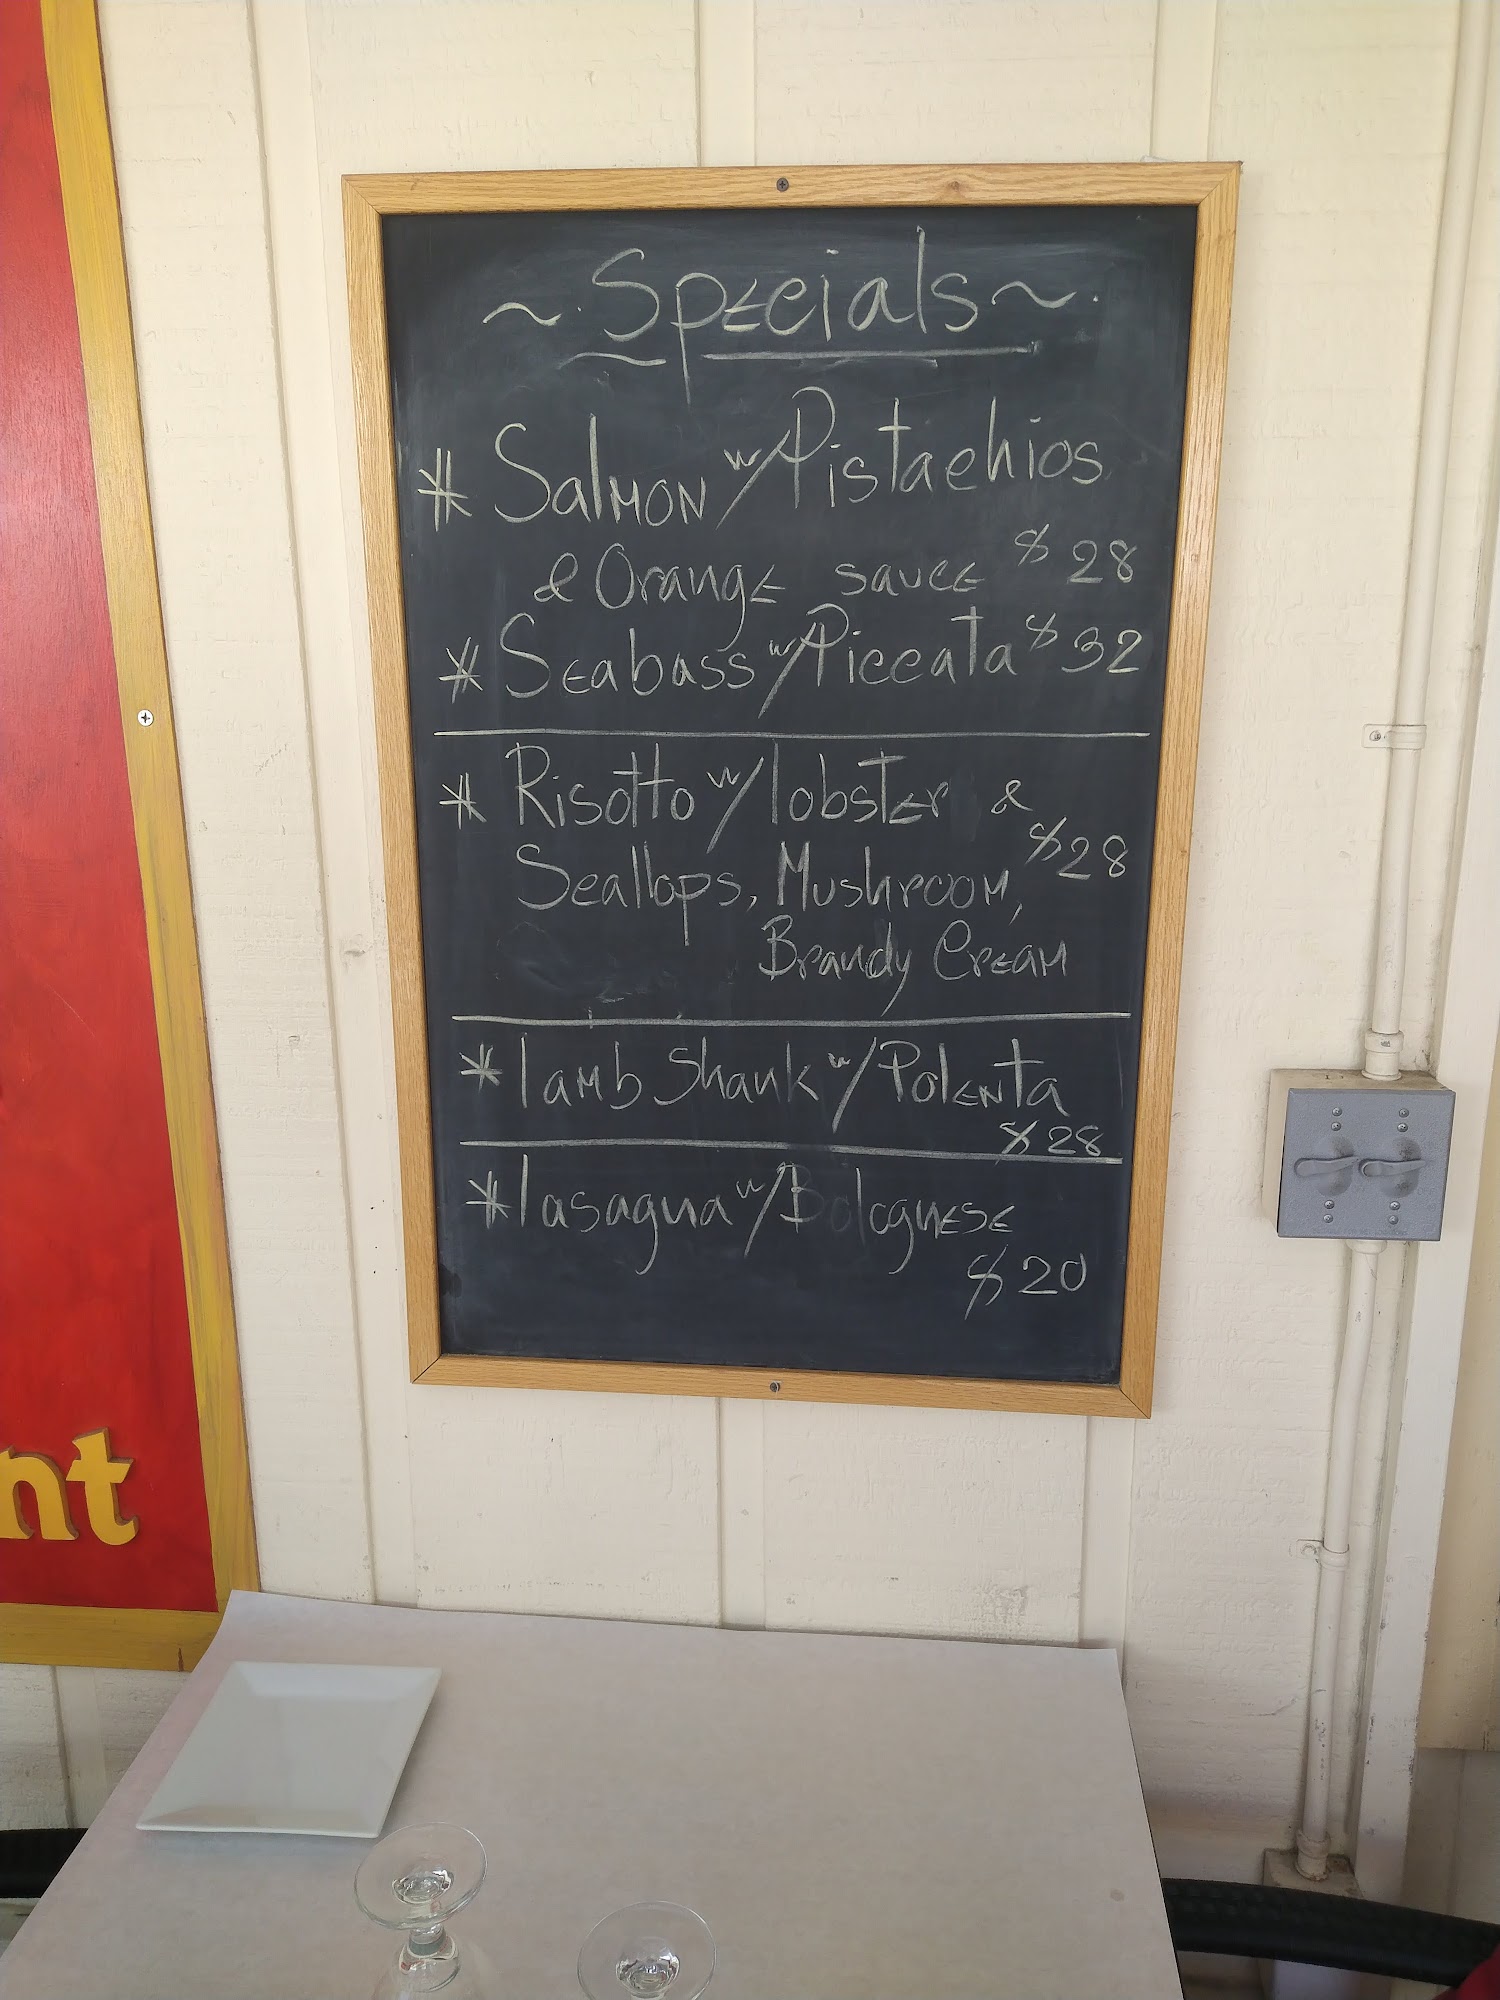 ~ Specials ~
* Salmon w/ Pistachios
& Orange sauce $28
* Seabass w/ Piccata $32
* Risotto w/ lobster &
Scallops, Mushroom, $28
Brandy Cream
* lamb Shank w/ Polenta
$28
* lasagna w/ Bolognese
$20
nt